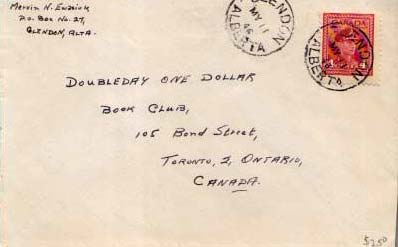 Mervin N.
P.O. Box No. 27,
GLENDON, ALTA.
GLENDON
MY 11
46
ALBERTA
CANADA
4 4
GLENDON
ALBERTA
DOUBLEDAY ONE DOLLAR
BOOK CLUB,
105 Bond Street,
TORONTO, 2, ONTARIO,
CANADA.
$2.50